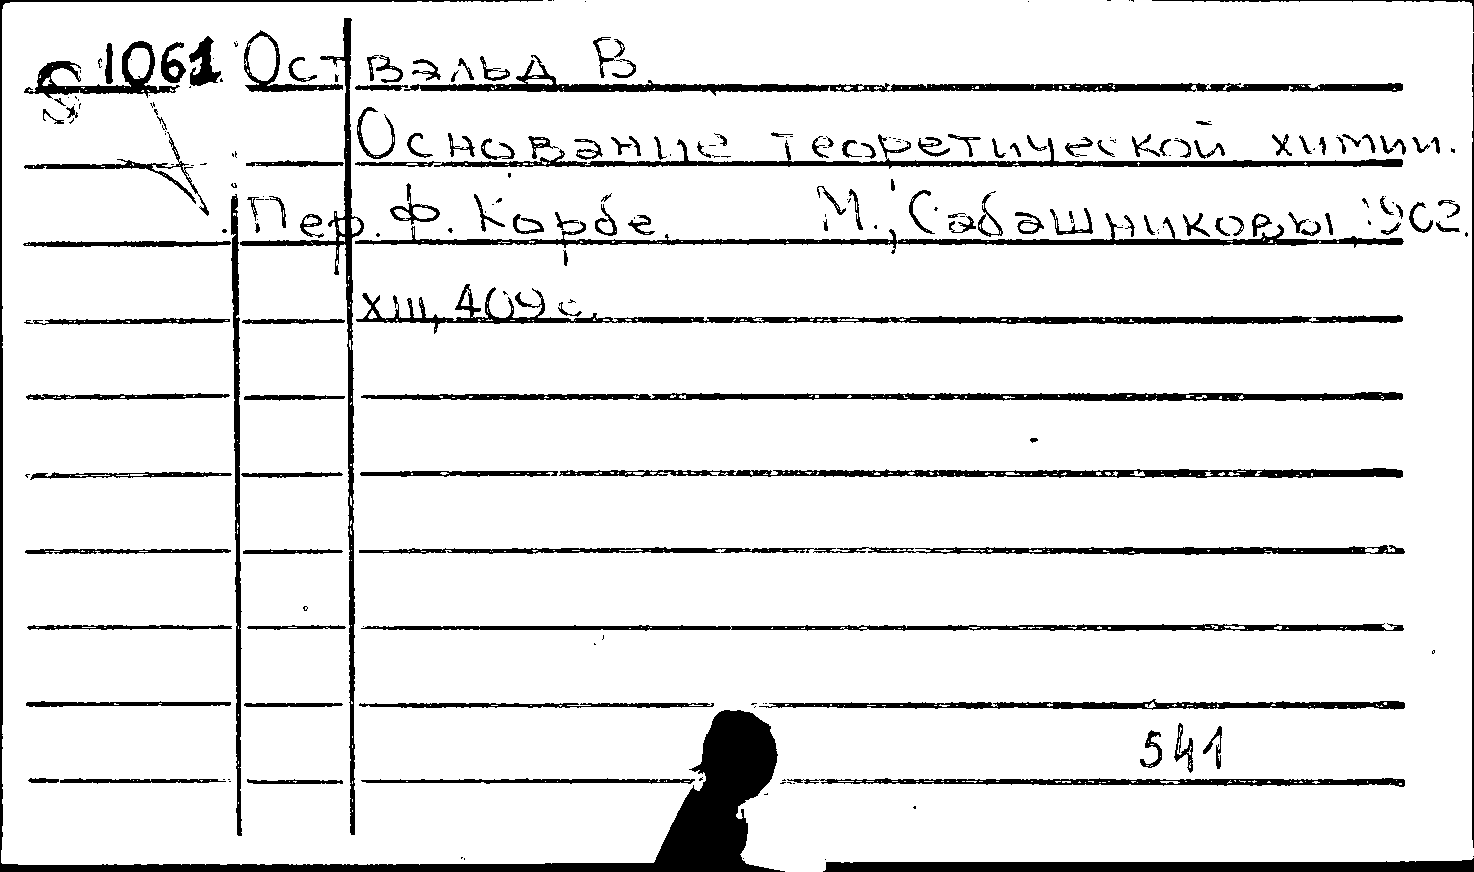 S 1061 Оствальд В.
Основание теоретической химии.
Пер. Ф. Корбе. М., Сабашниковы, 1902.
XIII, 409 с.
541